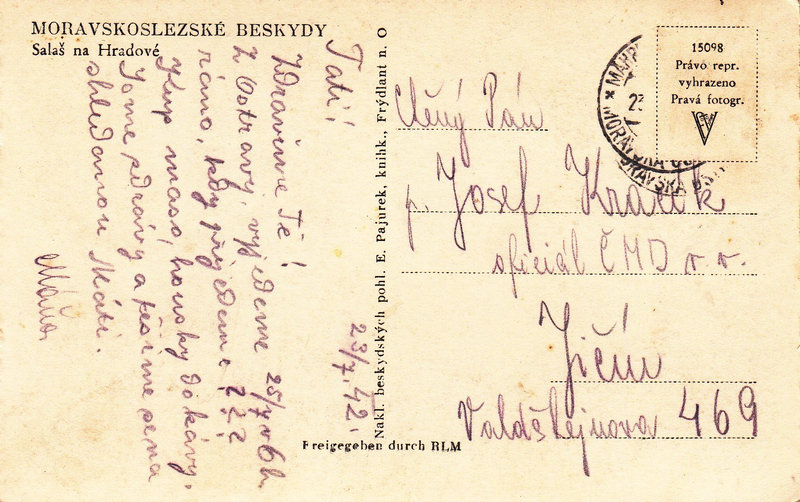 MORAVSKOSLEZSKÉ BESKYDY
Salaš na Hradové
Tati!
Zdravíme Tě!
Z Ostravy vyjedeme 25/7 v 6h
ráno, kdy přijedeme ???
Kup maso, housky do kávy.
Jsme zdrávy a těšíme se na
shledanou Máti.
Máňa
23/7. 42.
Nakl. beskydských pohl. E. Pajurek, knihk., Frýdlant n. O
Freigegeben durch RLM
15098
Právo repr.
vyhrazeno
Pravá fotogr.
MORAVSKÁ
23
Ctěný Pán
p. Josef Králík
oficiál ČMD v. v.
Jičín
Valdštejnova 469